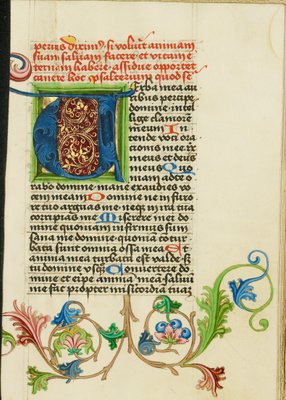 perius diximus si voluerit animam
suam salvam facere et vitam e
ternam habere assidue oportet
canere hoc psalterium quod se
VErba mea au
ribus percipe
domine intel
lige clamore
meum In
tende voci ora
tionis mee rex
meus et deus
meus Quo
niam ad te o
rabo domine mane exaudies vo
cem meam Domine ne in furo
re tuo arguas me neque in ira tua
corripias me Miserere mei do
mine quoniam infirmus sum
sana me domine quoniam contur
bata sunt omnia ossa mea Et
anima mea turbata est valde s
tu domine usque Convertere do
mine et eripe animam meam salvum
me fac propter misericordiam tuam